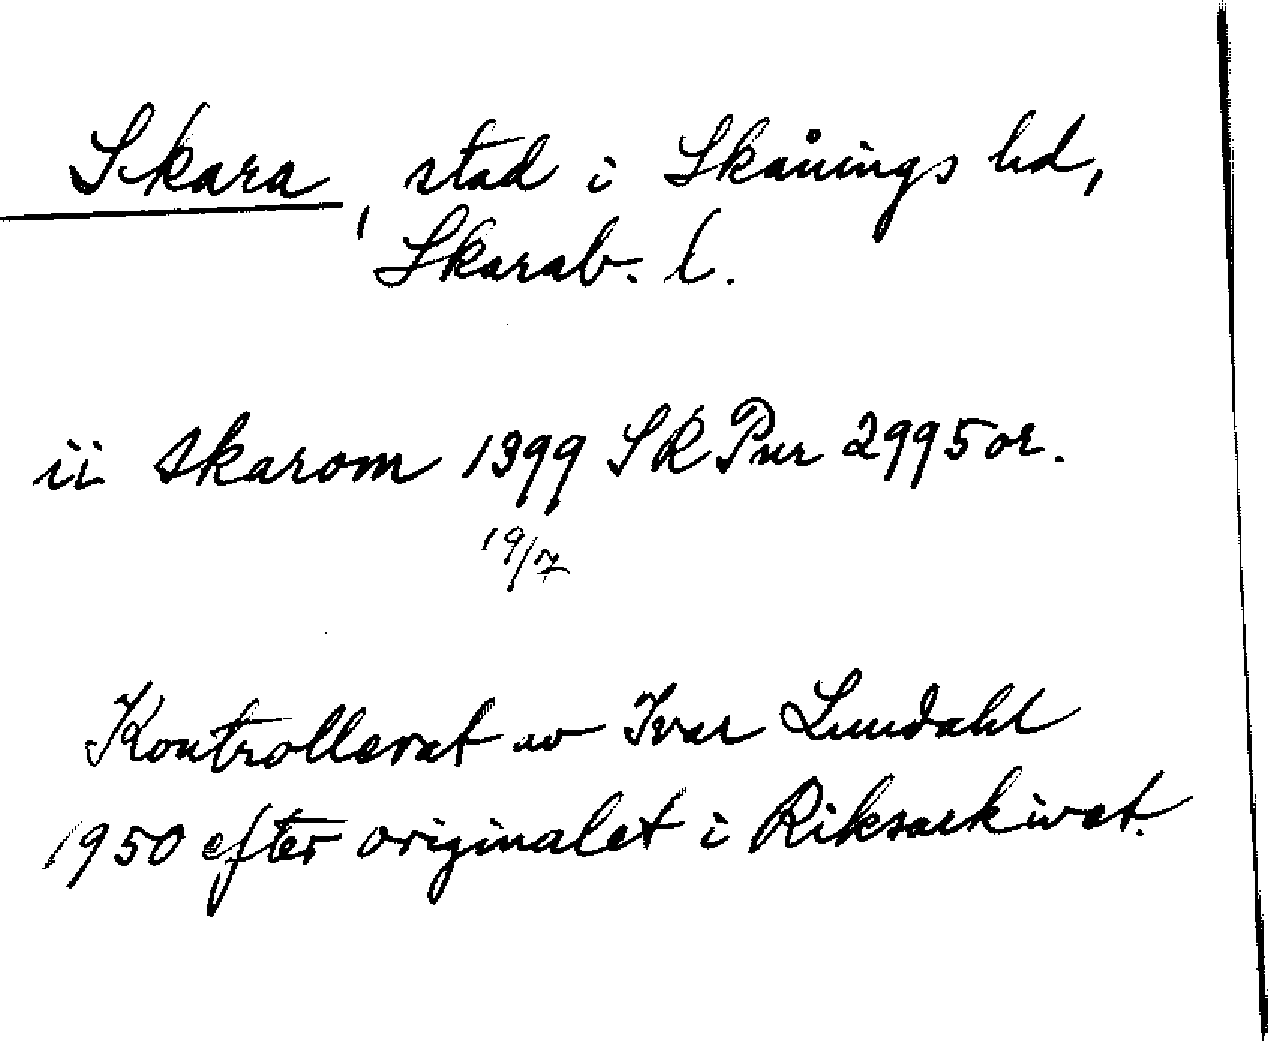 Skara, stad i Skånings hd,
Skarab. l.
ii skarom 1399 SRPnr 2995 or.
19/7
Kontrollerat av Ivar Lundahl
1950 efter originalet i Riksarkivet.